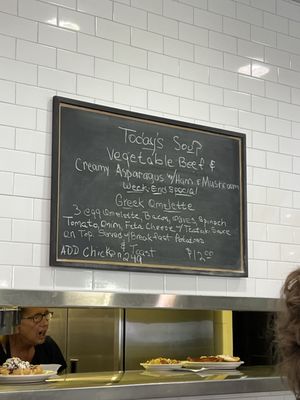 Today's Soup
Vegetable Beef &
Creamy Asparagus w/Ham & Mushroom
Week End Special
Greek Omelette
3 egg omelette, Bacon, olives, Spinach
Tomato, Onion, Feta Cheese w/ Tzatziki Sauce
on Top. Served w/ Breakfast Potatoes
& Toast
ADD Chicken 2.99 $12.00